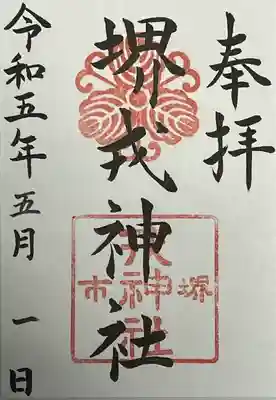 奉拝
堺戎神社
堺
神社
市
令和五年五月一日